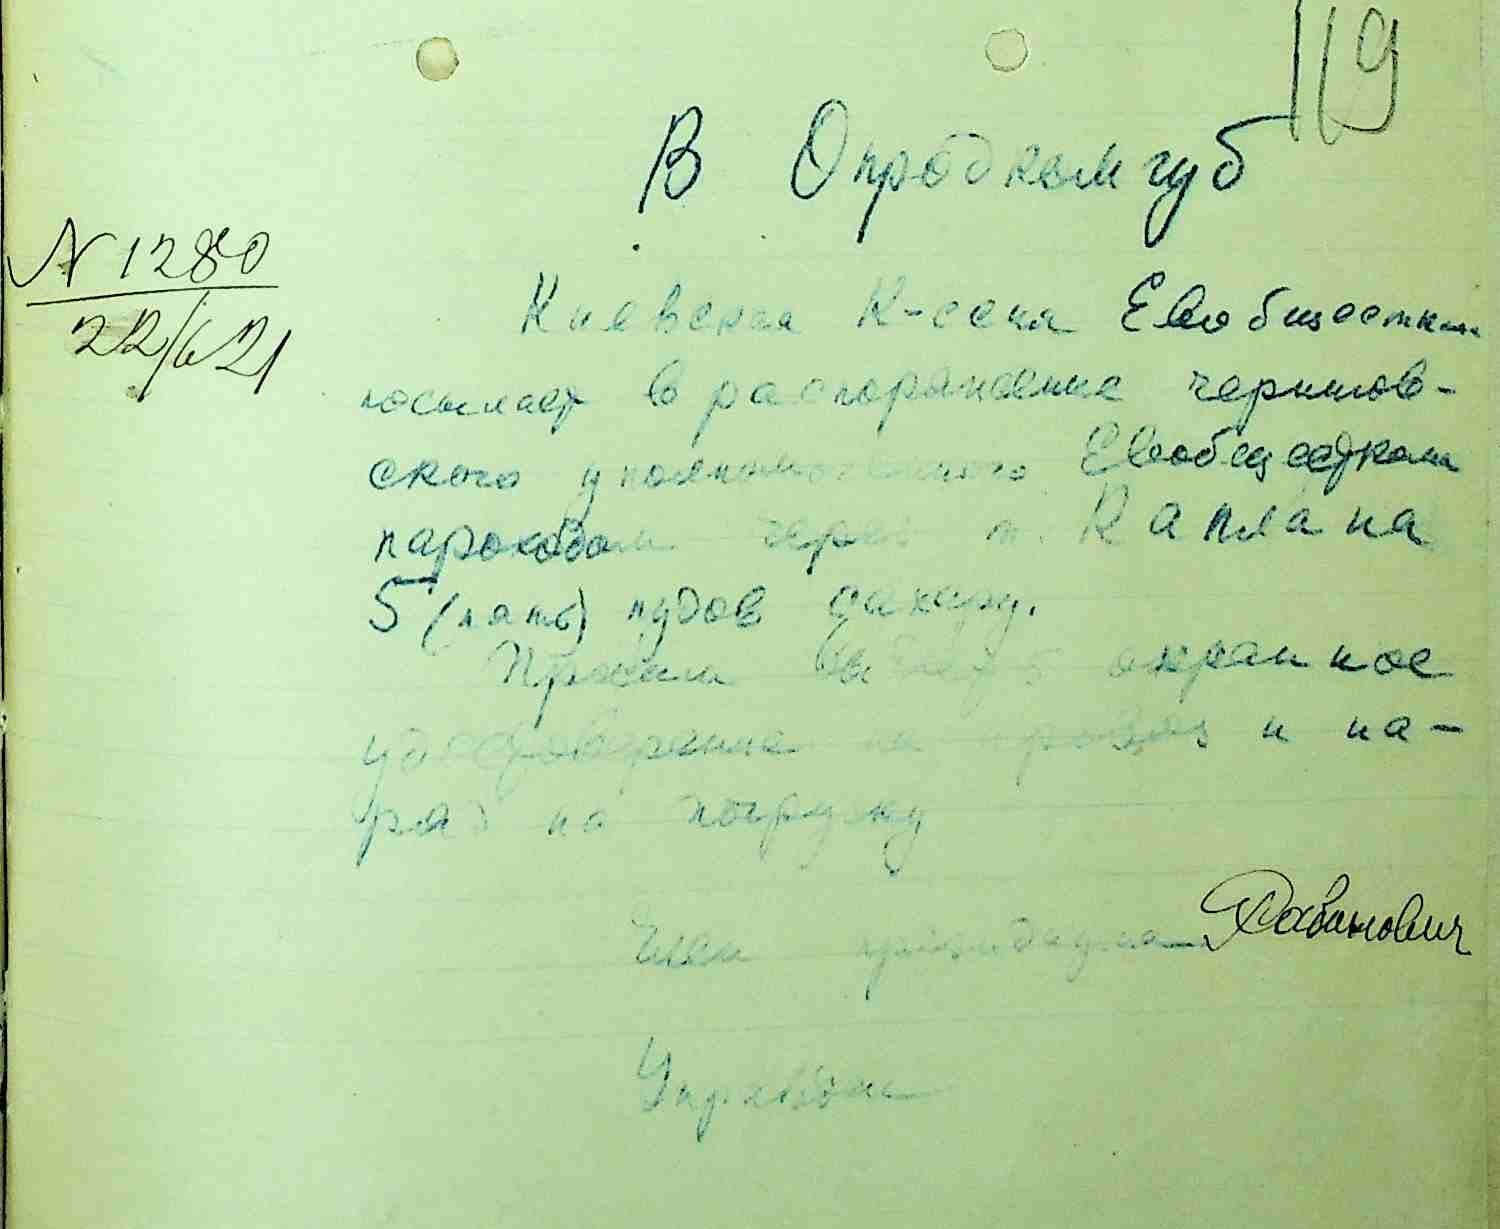 119
В Опродкомгуб
N 1280
22/6 21
Киевская К-сския Евобщестком
посылает в распоряжение чернигов-
ского уполномоченного Евобщестком
пароходом через т. Каплана
5 (пять) пудов сахару.
Просим выдать охранное
удостоверение на провоз и на-
ряд на погрузку
Член президиума Рабинович
Управдел